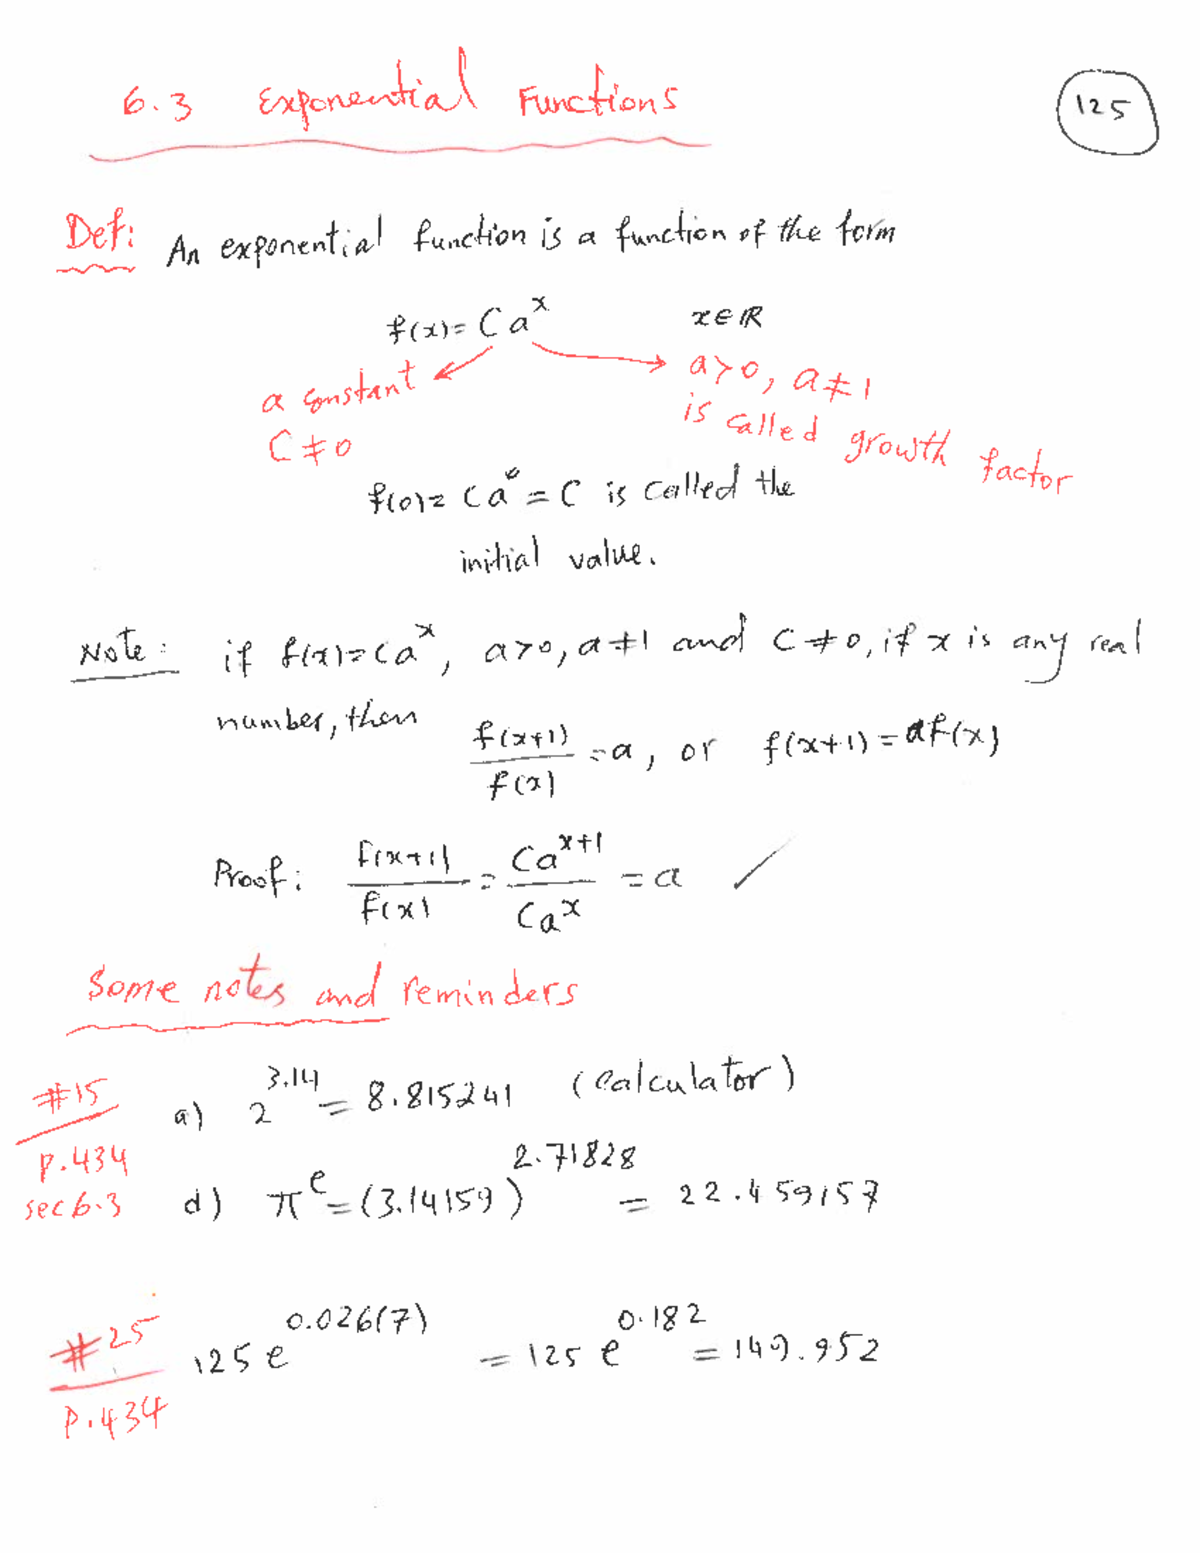 6.3 Exponential Functions
125
Def: An exponential function is a function of the form
f(x) = C a^x x ∈ ℝ
a constant a > 0, a ≠ 1
C ≠ 0 is called growth factor
f(0) = C a^0 = C is called the
initial value.
Note: if f(x) = C a^x, a > 0, a ≠ 1 and C ≠ 0, if x is any real
number, then f(x+1)/f(x) = a, or f(x+1) = a f(x)
Proof: f(x+1)/f(x) = C a^(x+1)/C a^x = a ✓
Some notes and reminders
#15 a) 2^3.14 = 8.815241 (calculator)
p.434
sec 6.3 d) π^e = (3.14159)^2.71828 = 22.459157
#25 125 e^0.026(7) = 125 e^0.182 = 149.952
p.434